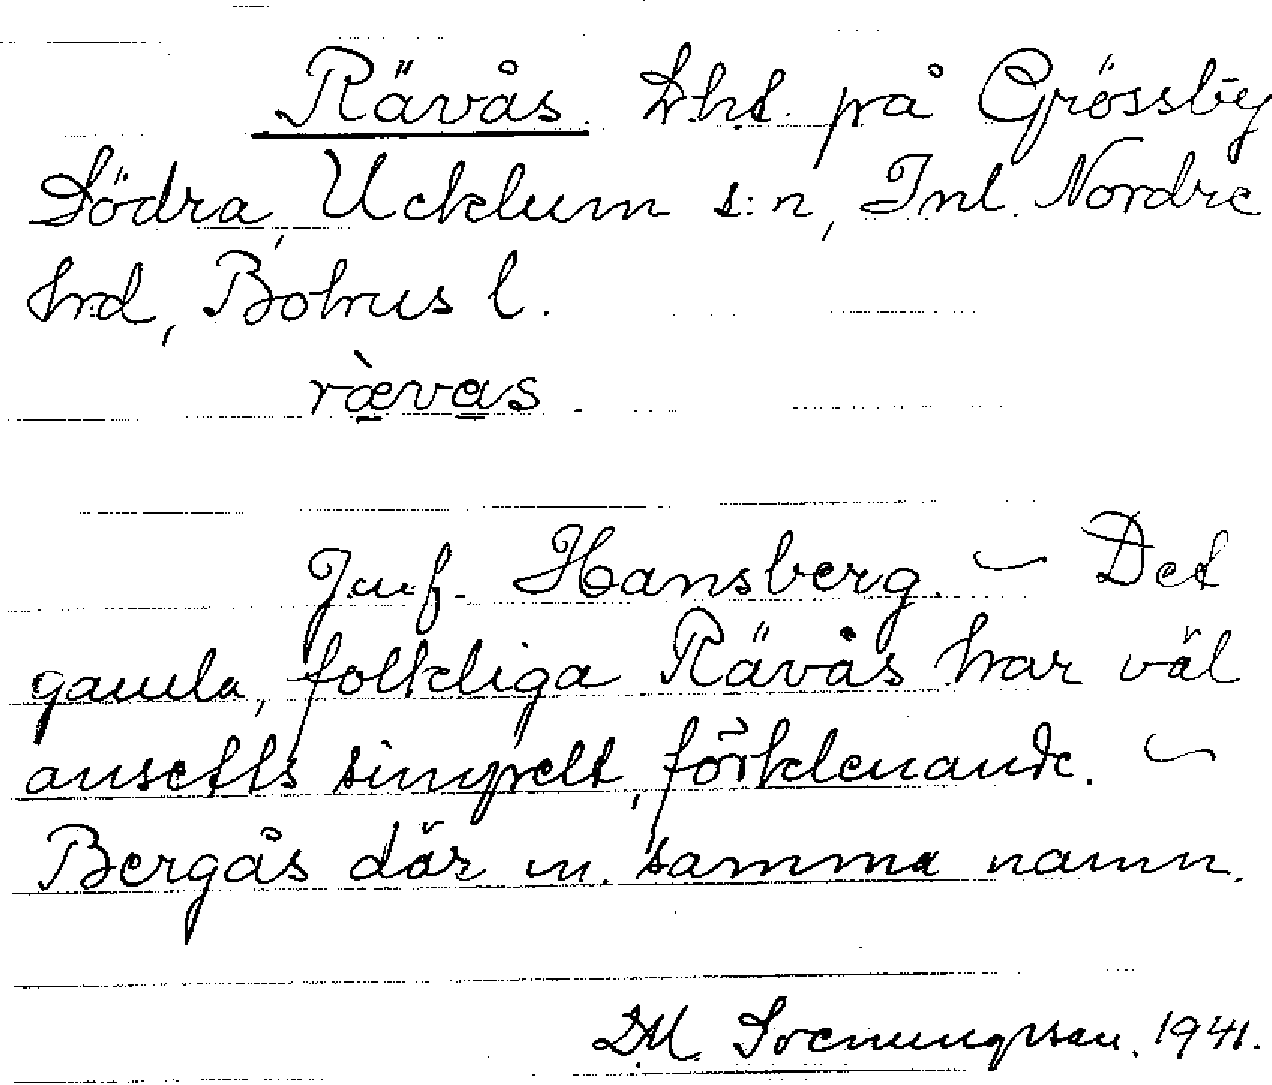 Rävås. Lht. på Grössby
Södra, Ucklum s:n, Inl. Nordre
hrd, Bohus l.
rævas.
Jmf. Hansberg. – Det
gamla, folkliga Rävås har väl
ansetts simpelt, förklenande. –
Bergås där m. samma namn.
Svenungsson. 1941.